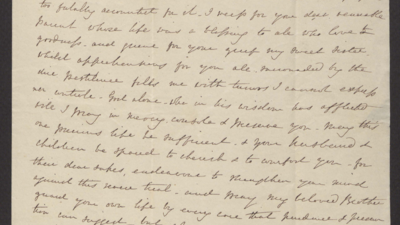 to fatally accounted for it. I weep for your dear venerable
Parent whose life was a blessing to all who love
goodness, and grieve for you my most
whilst apprehensions for you all surrounded by the
dire pestilence fills me with terrors I cannot express
nor controle. God alone who in his wisdom has afflicted
will I pray in mercy console & Preserve you. May this
one precious life be sufficient & your Husband &
children be spared to cherish & to comfort you. For
their dear sakes, endeavour to strengthen your mind
against this severe trial. and may my beloved Brother
guard your own life by every care that prudence &
can suggest, but